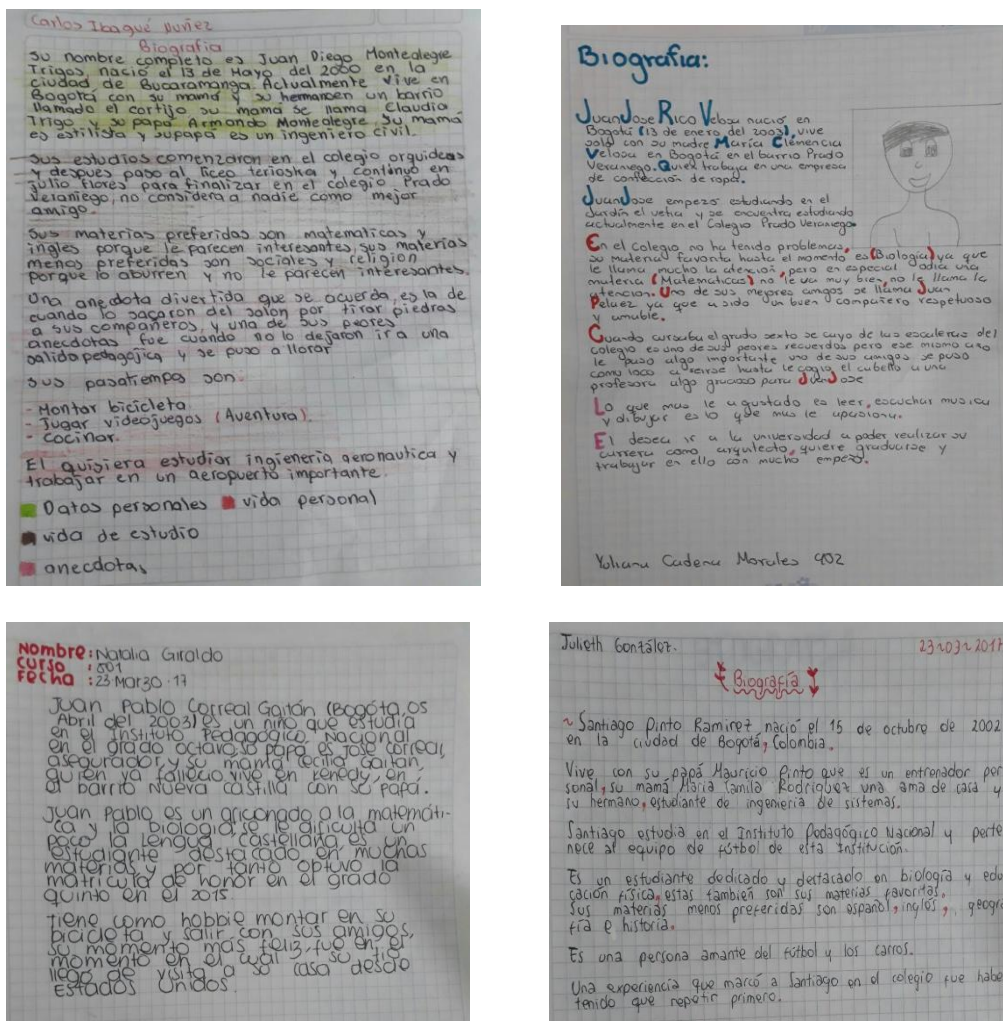 Carlos Ibagué Nuñez
Biografia
Su nombre completo es Juan Diego Montealegre
Trigos, nacio el 13 de Mayo del 2000 en la
ciudad de Bucaramanga. Actualmente vive en
Bogotá con su mamá y su hermanoen un barrio
llamado el cortijo su mamá se nama Claudia
Trigo y su papá Armando Montealegre, su mamá
es estilista y supapá es un ingeniero civil.
Sus estudios comenzaron en el colegio orguideas
y despues paso al liceo terioska y continuo en
julio flores para finalizar en el colegio Prado
Veraniego, no considera a nadie como mejor
amigo.
Sus materias preferidas son matematicas y
ingles porque le parecen interesantes, sus materias
menos preferidas son sociales y religion
porque lo aburren y no le parecen interesantes.
Una anedota divertida que se acuerda, es la de
cuando lo sacaron del salon por tirar piedras
a sus compañeros, y una de sus peores
anecdotas fue cuando no lo dejaron ir a una
salida pedagojica y se puso a llorar
Sus pasatiempos son:
- Montar bicicleta.
- Jugar videojuegos (Aventura).
- Cocinar.
El quisiera estudiar ingieneria aeronautica y
trabajar en un aeropuerto importante.
Datos personales vida personal
vida de estudio
anecdotas
Biografia:
Juan Jose Rico Velosa nacio en
Bogotá (13 de enero del 2003), vive
solo con su madre María Clemencia
Velosa en Bogotá en el barrio Prado
Veraniego. Quien trabaja en una empresa
de confección de ropa.
Juan Jose empezo estudiando en el
Jardín el vetia y se encuentra estudiando
actualmente en el Colegio Prado Veraniego.
En el colegio no ha tenido problemas,
su materia favorita hasta el momento es (Biología) ya que
le llama mucho la atención, pero en especial odia una
materia (Matematicas) no le va muy bien, no le llama la
atencion. Uno de sus mejores amigos se llama Juan
Peluez ya que a sido un buen compañero respetuoso
y amable.
Cuando cursaba el grado sexto se cayo de las escaleras del
colegio es uno de sus peores recuerdos pero ese mismo año
le paso algo importante uno de sus amigos se puso
como loco a reirse hasta le cogio el cabello a una
profesora algo gracioso para Juan Jose
Lo que mas le a gustado es leer, escuchar musica
y dibujar es lo que mas le apasiona.
El desea ir a la universidad a poder realizar su
carrera como arquitecto, quiere graduarse y
trabajar en ello con mucho empeño.
Yuliana Cadena Morales 902
Nombre: Natalia Giraldo
curso : 801
Fecha : 23 Marzo-17
Juan Pablo Correal Gaitán (Bogóta, 05
Abril del 2003) es un niño que estudia
en el Instituto Pedagógico Nacional
en el grado octavo, so papá es José correal,
asegurador, y su mamá Cecilia Gaitán,
quien ya fallecio, vive en Kenedy, en
el barrio Nueva Castilla con su papá.
Juan Pablo es un aficionado a la matemáti-
ca y la biología, se le dificulta un
poco la lengua castellana es un
estudiante destacado en muchas
materias y por tanto optuvo la
matricula de honor en el grado
quinto en el 2015.
Tiene como hobbie montar en su
bicicleta y salir con sus amigos,
su momento más feliz, fue en el
momento en el cual su tío
llego de visita a so casa desde
Estados Unidos.
Julieth González.
23~03~2017
Biografía
~ Santiago Pinto Ramirez, nació el 15 de octubre de 2002
en la ciudad de Bogotá, Colombia.
Vive con su papá Mauricio Pinto que es un entrenador per
sonal, su mamá María Camila Rodríguez una ama de casa y
su hermano, estudiante de ingeniería de sistemas.
Santiago estudia en el Instituto Pedagógico Nacional y perte
nece al equipo de fútbol de esta Institución.
Es un estudiante dedicado y destacado en biología y edu
cación física, estas también son sus materias favoritas.
Sus materias menos preferidas son español, inglés, geogra
fía e historia.
Es una persona amante del fútbol y los carros.
Una experiencia que marcó a Santiago en el colegio fue habe
tenido que repetir primero.